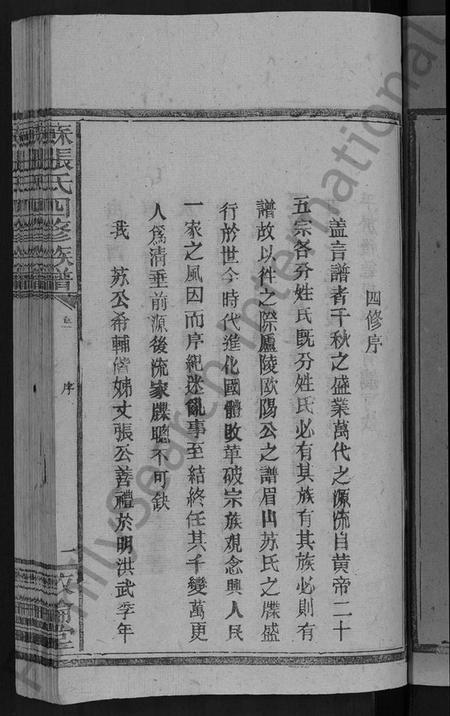 四修序
盖言譜者千秋之盛業萬代之源流自黄帝二十
五宗各分姓氏既分姓氏必有其族有其族必則有
譜故以往之際廬陵歐陽公之譜眉山苏氏之牒盛
行於世今時代進化國體改革破宗族观念興人民
一家之風因而序紀迷亂事至結終任其千變萬更
人爲清垂前源後流家牒聰不可缺
我 苏公希輔偕姊丈張公善禮於明洪武季年
蘇張氏四修族譜
卷一
序
一
敦倫堂
FamilySearch International